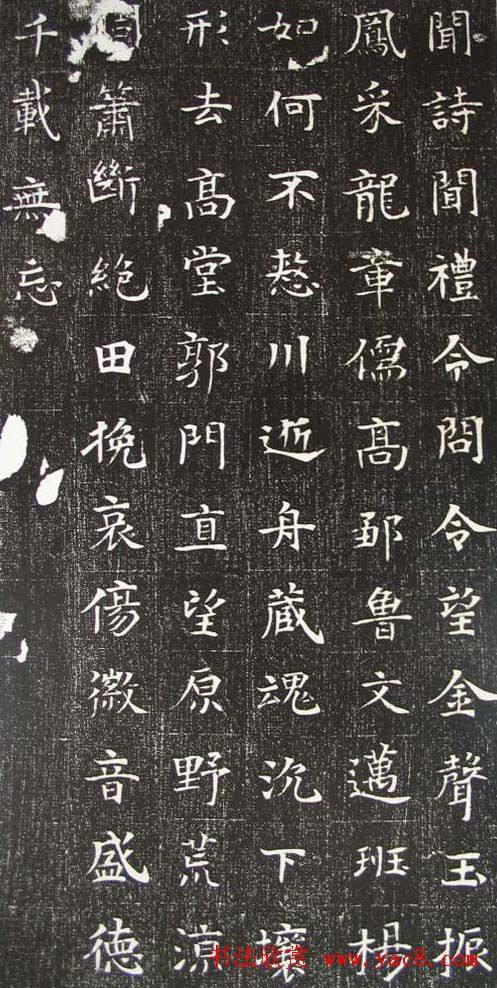 聞詩聞禮令問令望金聲玉振
鳳采龍章儒髙鄒魯文邁班楊
如何不憗川逝舟蔵魂沉下壤
形去髙堂郭門直望原野荒涼
簫斷絶田挽哀傷徽音盛德
千載無忘
书法欣赏 www.yac8.com